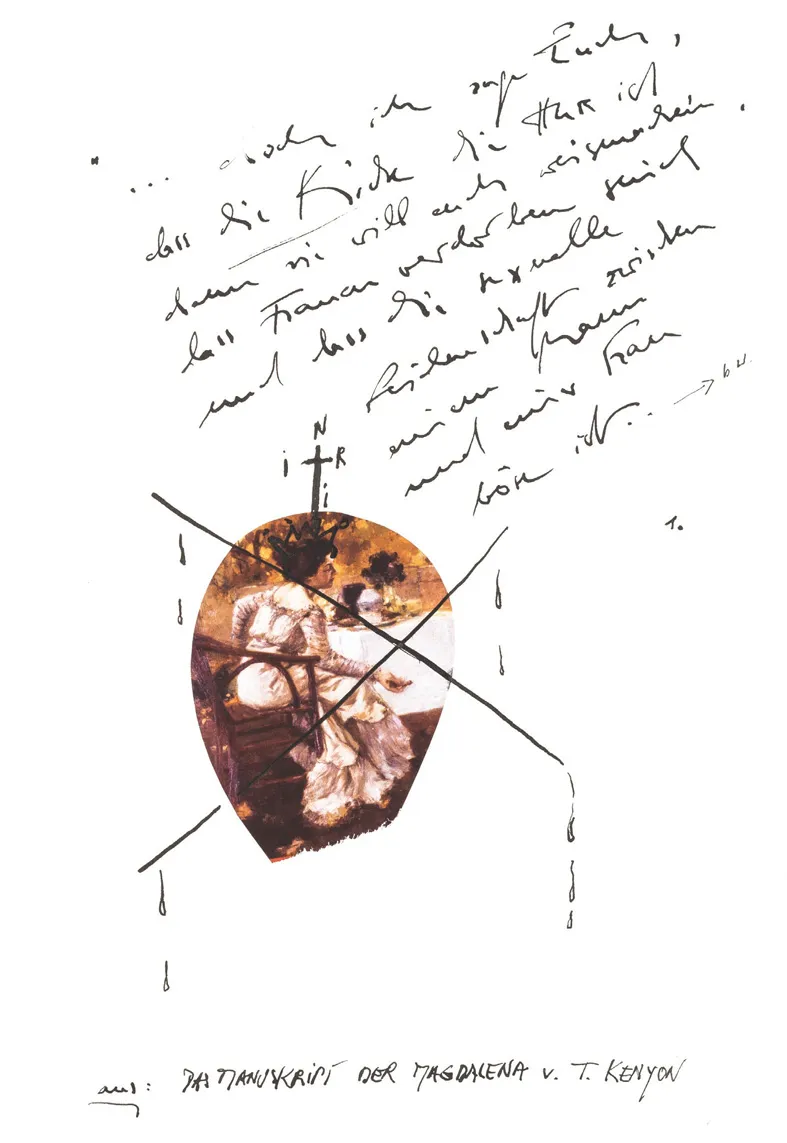 "... doch ich sage Euch,
dass die Kirche die HURE ist
denn sie will euch weismachen,
dass Frauen verdorben sind
und dass die sexuelle
Leidenschaft zwischen
einem Mann
und einer Frau
böse ist...
N
i R
i
1.
aus: DAS MANUSKRIPT DER MAGDALENA v. T. KENYON